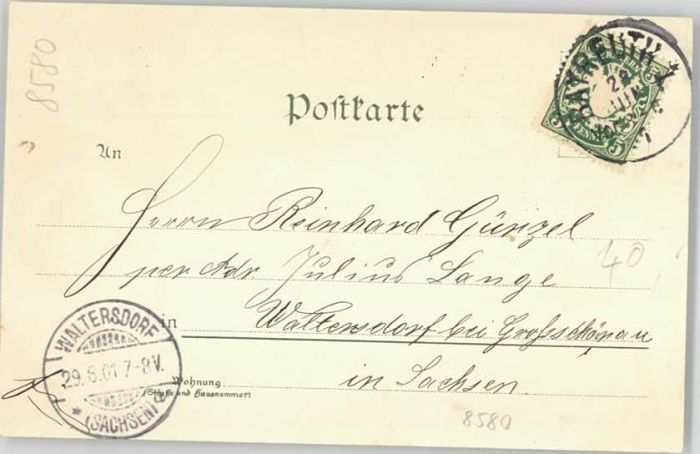 8580
Postkarte
BAYREUTH
An
Herrn Reinhard Günzel
per Adr. Julius Lange
40
in Waltersdorf bei Großschönau
in Sachsen.
WALTERSDORF
29.6.01 7-8V.
(SACHSEN)
Wohnung
(Straße und Hausnummer)
8580